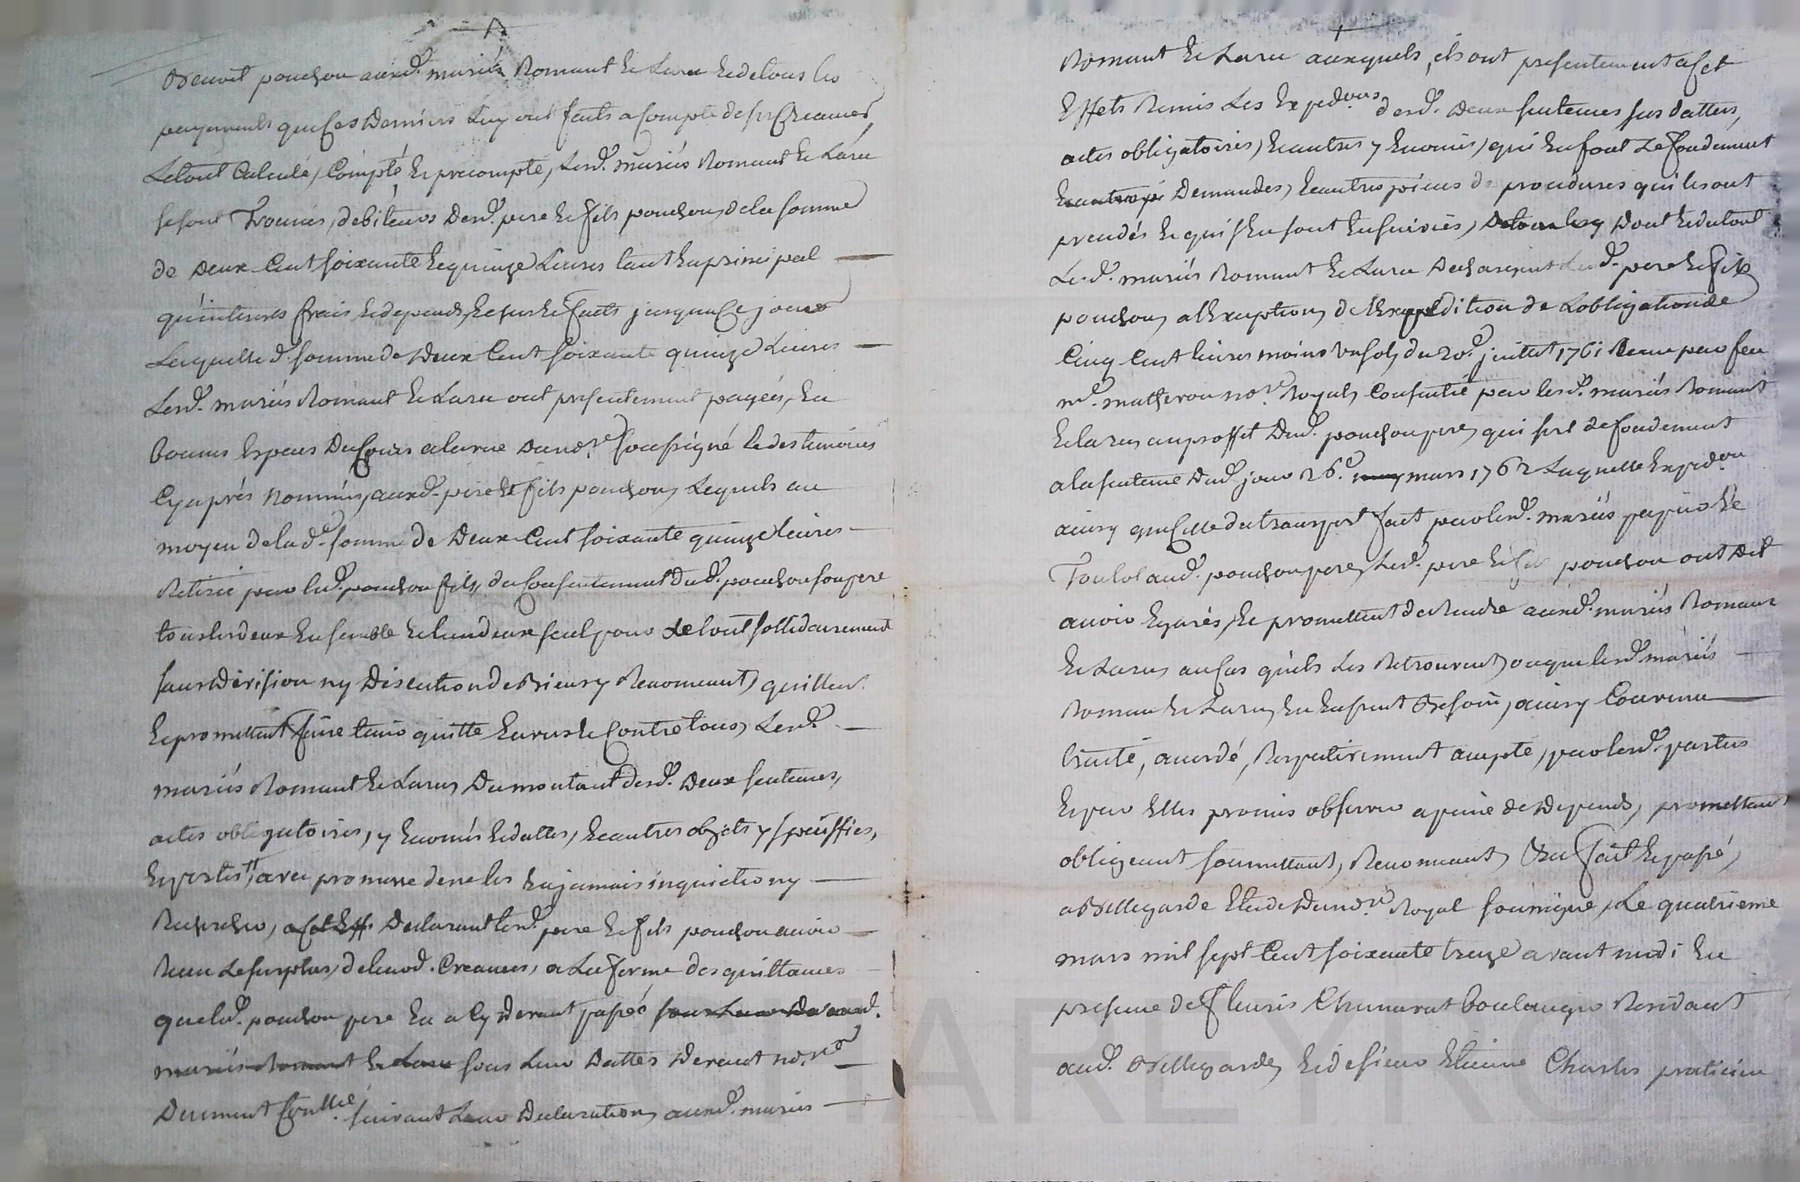 Benoit ponchon auxd. mariés Romant et Laru et de tous les
payements que ces derniers luy ont faits a compte de ses creances,
Le tout calculé, compté et precompté, Lesd. mariés Romant et Laru
se sont trouvés, debiteurs desd. pere et fils ponchon, de la somme
de deux cent soixante et quinze Livres tant en principal
qu'interets frais, et depends, et jusques ce jour
Laquelle d. somme de deux cent soixante quinze Livres
Lesd. mariés Romant et Laru ont presentement payée, en
bonnes especes du cours a la vue du no.re soussigné et des temoins
cy après nommés, auxd. pere et fils ponchon, Lequels au
moyen de lad. somme de deux cent soixante quinze livres
Retirée par led. ponchon fils, du consentement dud. ponchon son pere
tous les deux ensemble et l'un d'eux seul pour le tout sollidairement
sans division ny discution de biens y Renonceant, quittent
et promettent faire tenir quitte envers et contre tous, Lesd.
mariés Romant et Laru, du montant desd. deux sentences,
actes obligatoires, y enoncés et dattes, et autres objets y speciffies,
avec promesse de ne les en jamais inquieter ny
Rechercher, a cet eff. Declarant lesd. pere et fils ponchon avoir
Receu le surplus, de leurd. Creances, a La forme des quittances
que led. ponchon pere en a cy devant passé sous Leur Dattes auxd.
mariés Romant et Laru sous Leur Dattes devant no.res
Duement conttlé. suivant Leur Declaration, auxd. mariés
Romant et Laru auxquels, ils ont presentement a cet
Effets Remis Les Exped.ons desd. deux sentences sus dattees,
actes obligatoires, et autres y enoncés, qui en font Le fondement
Demandes, et autres pieces de procedures qui les ont
precedés et qui s'en sont ensuivies, dont et du tout
Lesd. mariés Romant et Laru dechargent Lesd. pere et fils
ponchon, a l'Exception, de l'Expedition de L'obligation de
Cinq cent livres moins un sol, du 20.e juillet 1761 Receue par feu
m.e matheron no.re Royal, Consentie par lesd. mariés Romant
et Laru au proffit dud. ponchon pere, qui sert de fondement
a la sentence dud. jour 26.e may mars 1762 Laquelle Exped.on
ainsy que celle du transport fait par lesd. mariés et
aud. ponchon pere, Lesd. pere et fils ponchon ont dit
avoir Egarés, et promettent de Rendre auxd. mariés Romant
et Laru, au cas qu'ils Les Retrouvent, ou que lesd. mariés
Romant et Laru, en eussent Besoin, ainsy Convenu
traité, acordé, Respectivement accepté, par lesd. parties
et par Elles promis observer a peine de depends, promettant
obligeant soumettant, Renonceant, Ce fait et passé,
a Bellegarde Etude dud. no.re Royal soussigné, Le quatrieme
mars mil sept cent soixante treize avant midi En
presence de fleuris Chunarat boulanger Residant
aud. Bellegarde, et de sieur Etienne Charles praticien